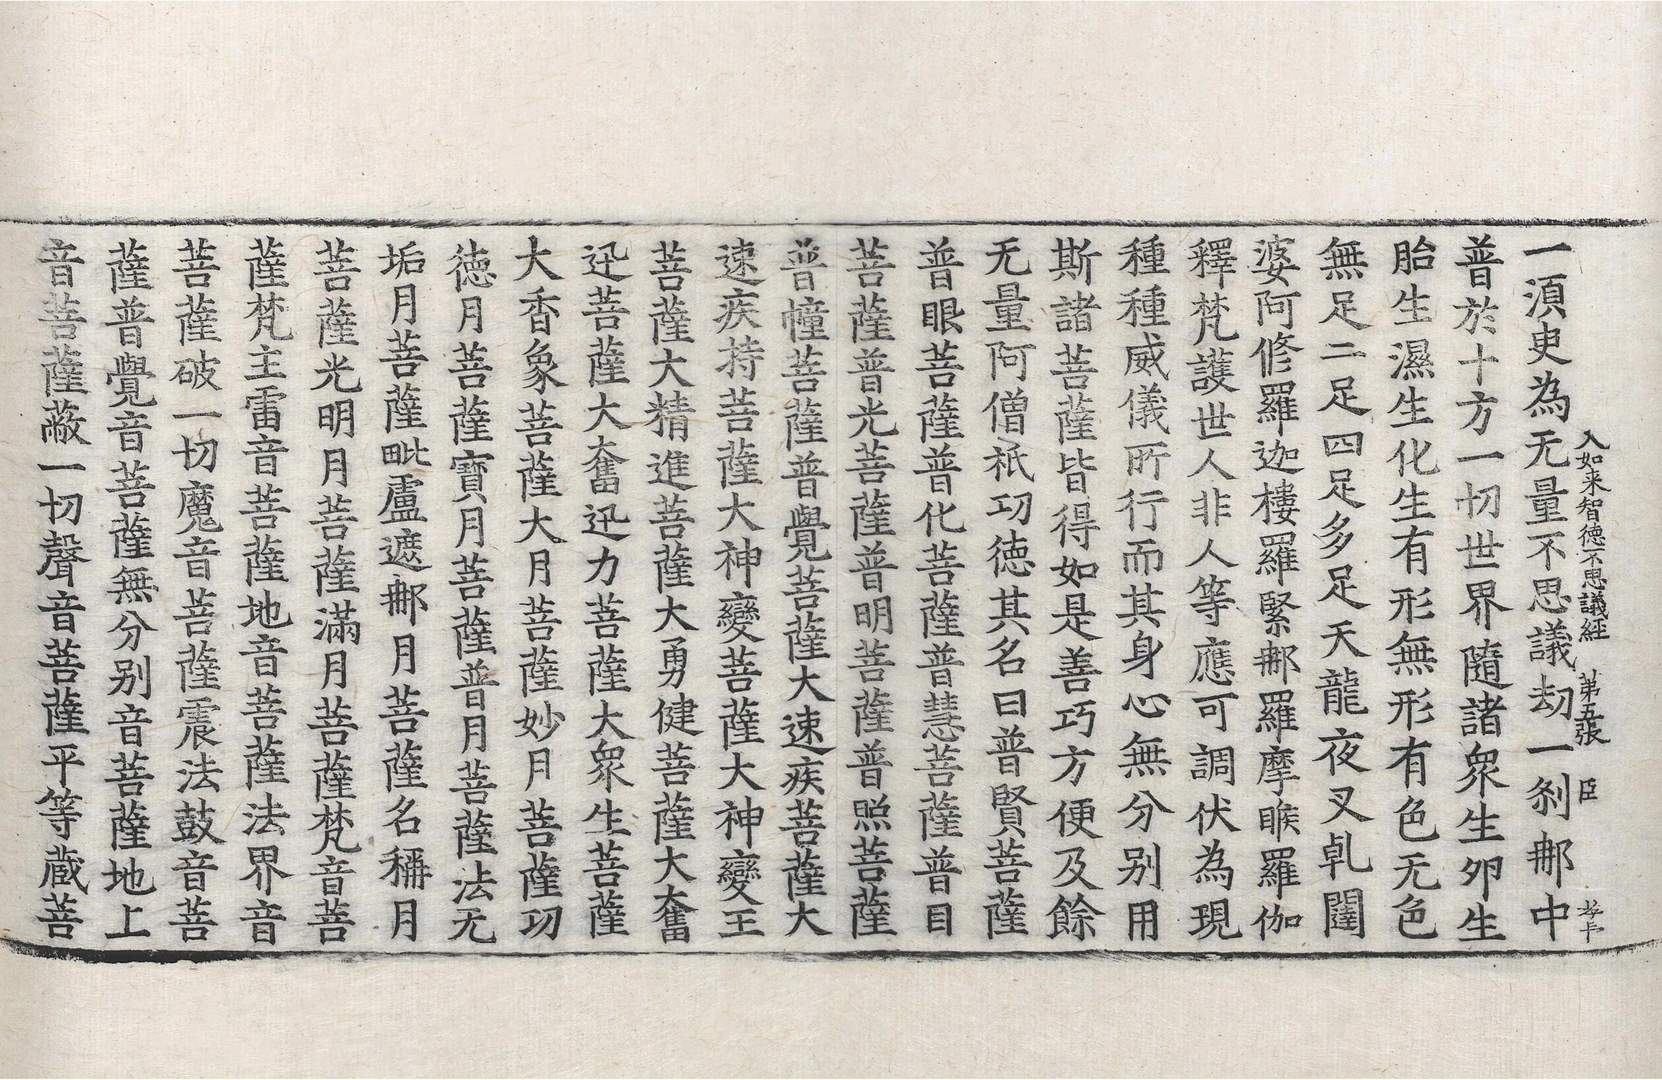 一須㬰為无量不思議劫一刹那中
入如来智德不思議經 第五張 臣
普於十方一切世界隨諸衆生夘生
胎生濕生化生有形無形有色无色
無足二足四足多足天龍夜叉乹闥
婆阿修羅迦樓羅緊那羅摩睺羅伽
釋梵護世人非人等應可調伏為現
種種威儀所行而其身心無分别用
斯諸菩薩皆得如是善巧方便及餘
无量阿僧祇功德其名曰普賢菩薩
普眼菩薩普化菩薩普慧菩薩普目
菩薩普光菩薩普明菩薩普照菩薩
普幢菩薩普覺菩薩大速疾菩薩大
速疾持菩薩大神變菩薩大神變王
菩薩大精進菩薩大勇健菩薩大奮
迅菩薩大奮迅力菩薩大衆生菩薩
大香象菩薩大月菩薩妙月菩薩功
德月菩薩寶月菩薩普月菩薩法无
垢月菩薩毗盧遮那月菩薩名稱月
菩薩光明月菩薩滿月菩薩梵音菩
薩梵主雷音菩薩地音菩薩法界音
菩薩破一切魔音菩薩震法鼓音菩
薩普覺音菩薩無分别音菩薩地上
音菩薩蔽一切聲音菩薩平等蔵菩